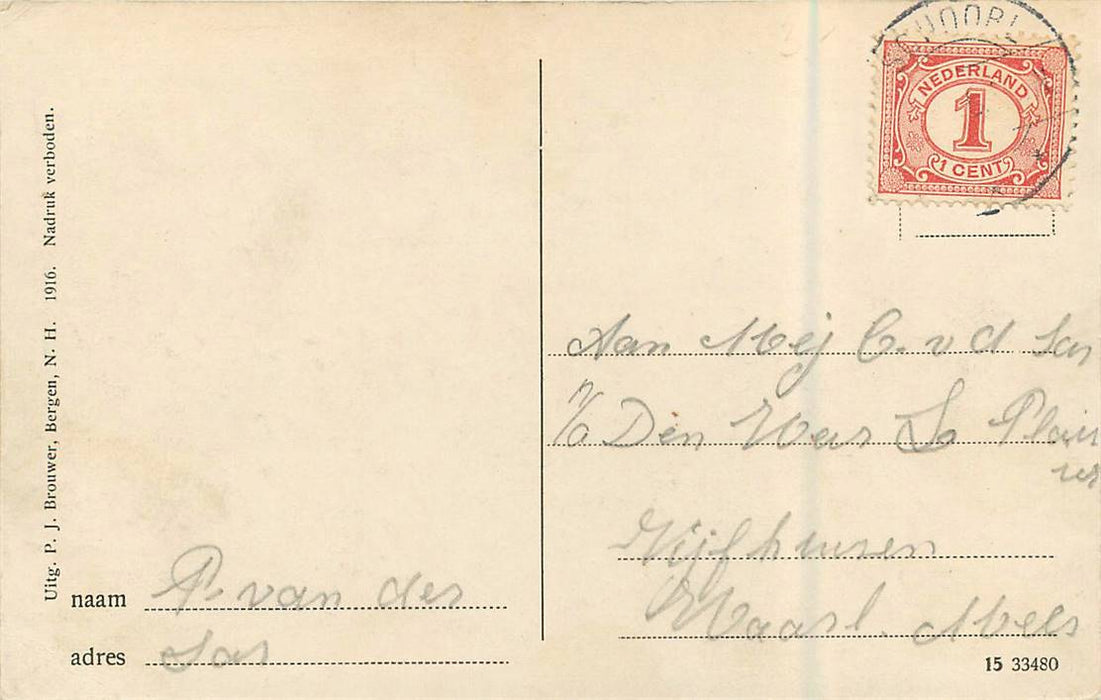 Uitg. P. J. Brouwer, Bergen, N. H. 1916. Nadruk verboden.
SCHOORL
NEDERLAND
1
1 CENT
Aan Mej C. v d
Den
Vijfhuizen
Haarl. Meer
naam P. van der
adres
15 33480